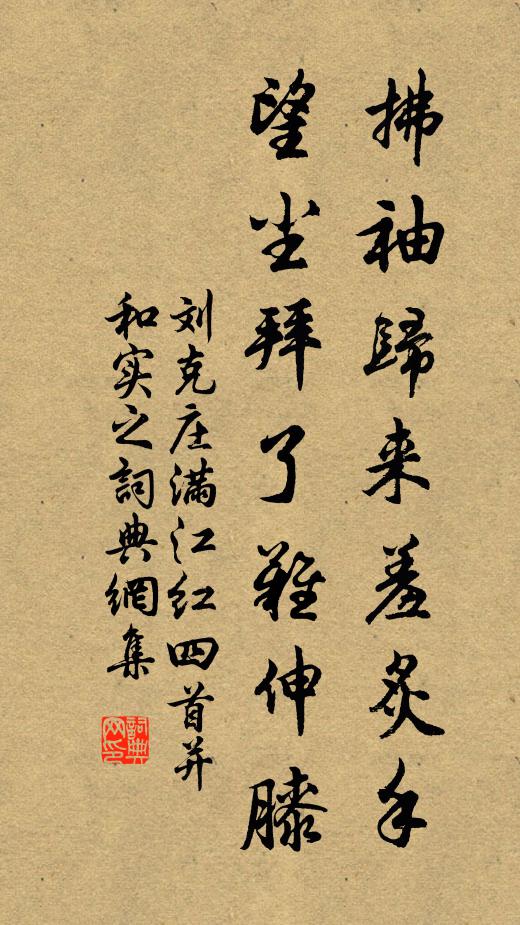 拂袖歸来羞炙手
望尘拜了難伸膝
刘克庄满江红四首并
和实之詞典網集
詞典
网印